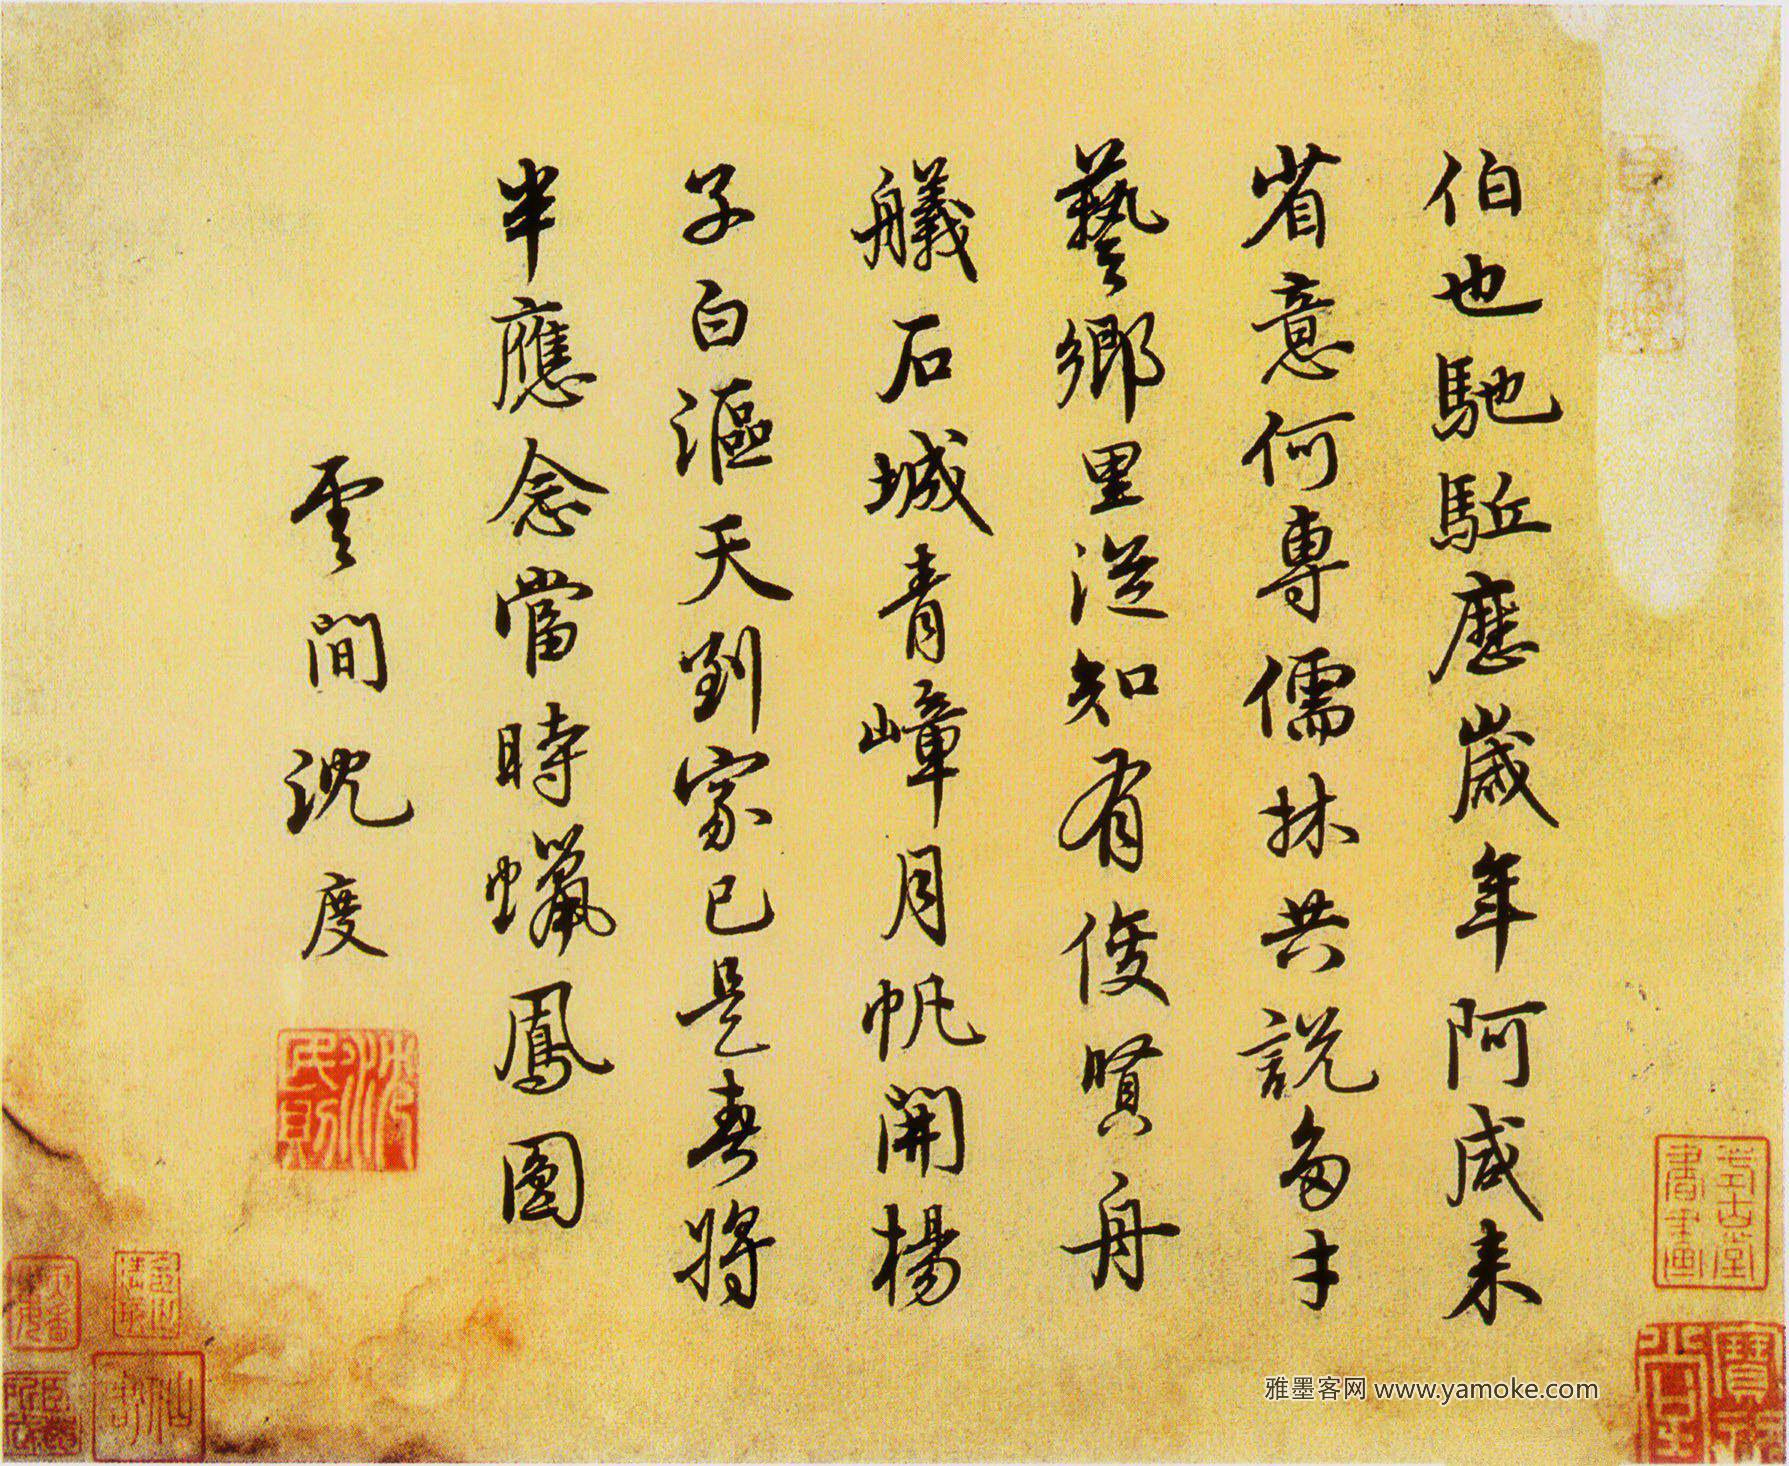 伯也馳駈歷歲年阿咸来
省意何專儒林共說多才
藝鄉里從知有俊賢舟
艤石城青嶂月帆開楊
子白漚天到家已是春將
半應念當時蠟鳳圓
雲間沈度
雅墨客网 www.yamoke.com